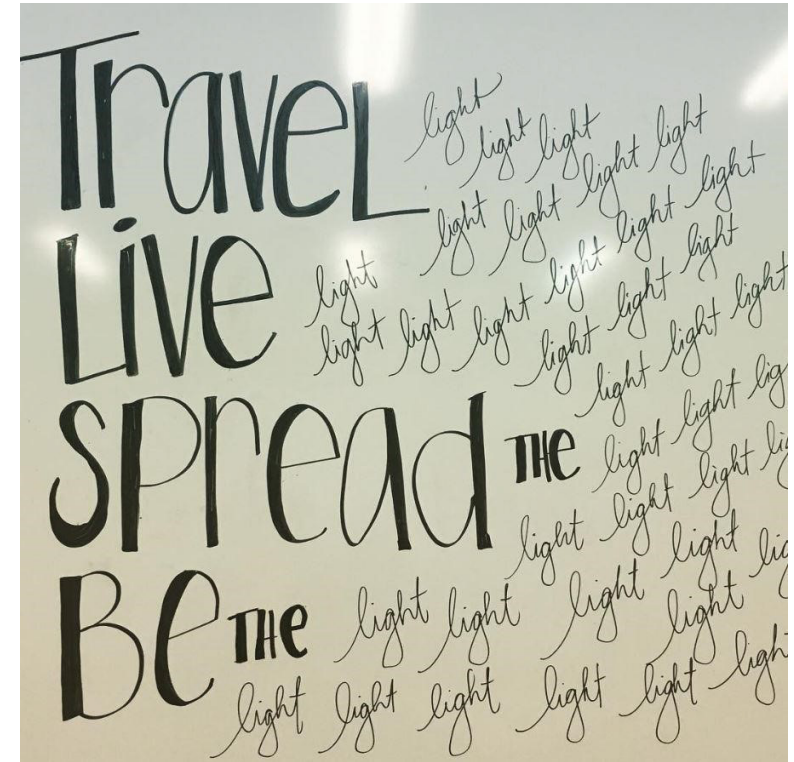 Travel light
light light
light light
light light light light
Live light light light
light light light light light
light light light
Spread THE light light lig
light light light li
light lig
Be THE light light light light
light light light light light ligh